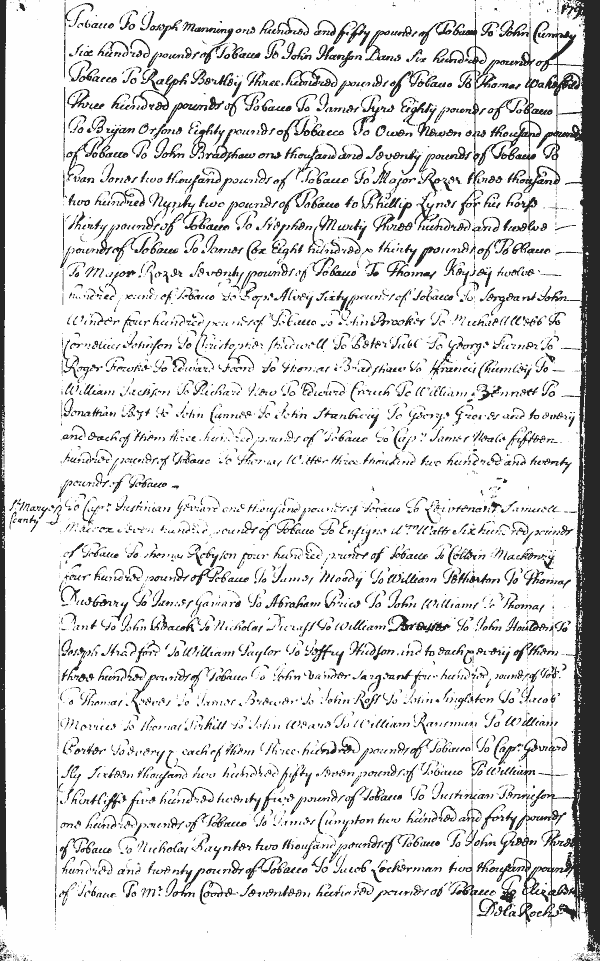 Tobacco To Joseph Manning one hundred and fifty pounds of Tobacco To John Cunney
Six hundred pounds of Tobacco To John Hanson Dane Six hundred pounds of
Tobacco To Ralph Bertley Three hundred pounds of Tobacco To Thomas Wakefeild
Three hundred pounds of Tobacco To James Tyre Eighty pounds of Tobacco
To Bryan Orsone Eighty pounds of Tobacco To Owen Newen one thousand pounds
of Tobacco To John Bradshaw one thousand and Seventy pounds of Tobacco To
Evan Jones two thousand pounds of Tobacco To Major Rozer three thousand
two hundred Nynty two pounds of Tobacco to Phillip Lynes for his horse
Thirty pounds of Tobacco To Stephen Murty Three hundred and twelve
pounds of Tobacco To James Cox Eight hundred & thirty pounds of Tobbacco
To Major Rozer Seventy pounds of Tobacco To Thomas Keysey twelve
hundred pounds of Tobacco To Alvey Sixty pounds of Tobacco To Sergeant John
Winder four hundred pounds of Tobacco To John Brookes To Michaell Webb To
Cornelius Johnson To Christopher To Peter To George Turner To
Roger Fowke To Edward To Thomas Bradshaw To Francis Chumley To
William Jackson To Richard New To Edward Crouch To William Bennett To
Jonathan To John Cunnee To John Stanbury To George Groves and to every
and each of them three hundred pounds of Tobacco to Capt. James Neale fifteen
hundred pounds of Tobacco To Thomas Witter three thousand two hundred and twenty
pounds of Tobacco
St. Maryes County
To Capt. Justinian Gerrard one thousand pounds of Tobacco To Lieutenant Samuell
Maddox Seven hundred pounds of Tobacco To Ensigne Wm Watts Six hundred pounds
of Tobacco To Thomas Robyson four hundred pounds of Tobacco To Collein Mackenzy
four hundred pounds of Tobacco To James Moody To William Petherton To Thomas
Dueberry To James To Abraham Price To John Williams To Thomas
Dant To John Peacok To Nicholas To William To John Houlden To
Joseph Stradford To William Taylor To Jeffry Hudson and to each & every of them
three hundred pounds of Tobacco To John Vander Sargeant four hundred pounds of Tob.
To Thomas Reeves To James Brewer To John Ross To John Singleton To Jacob
Morrice To Thomas To John Weare To William Raneman To William
Porter To every & each of them Three hundred pounds of Tobacco To Capt. Gerrard
Sly Sixteen thousand two hundred fifty Seven pounds of Tobacco To William
Shuntliffe five hundred twenty five pounds of Tobacco To Justinian Tennison
one hundred pounds of Tobacco To James Cumpton two hundred and forty pounds
of Tobacco To Nicholas Paynter two thousand pounds of Tobacco To John Green Three
hundred and twenty pounds of Tobacco To Jacob Lockerman two thousand pounds
of Tobacco To Mr. John Coode Seventeen hundred pounds of Tobacco To Elizabeth
Dela Roche